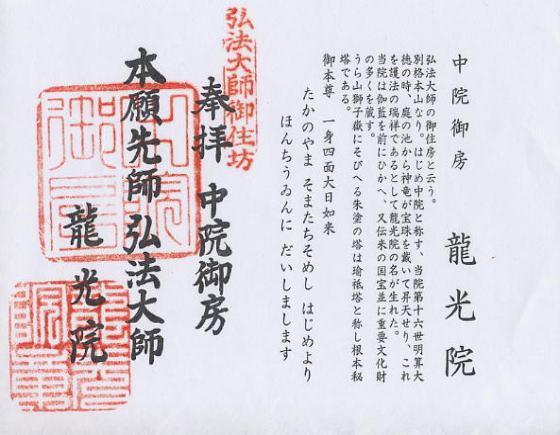 中院御房 龍光院
弘法大師の御住房と云う。
別格本山なり。はじめ中院と称す、当院第十六世明算大
徳の時、庭の池から神竜が宝珠を戴いて昇天せり、これ
を護法の瑞祥であるとして龍光院の名が生れた。
当院は伽藍を前にひかへ、又伝来の国宝並に重要文化財
の多くを蔵す。
うら山獅子嶽にそびへる朱塗の塔は瑜祗塔と称し根本秘
塔である。
御本尊 一身四面大日如来
たかのやま そまたちそめし はじめより
ほんちうゐんに だいしまします
弘法大師御住坊
奉拝 中院御房
本願先師弘法大師
龍光院
中院御房